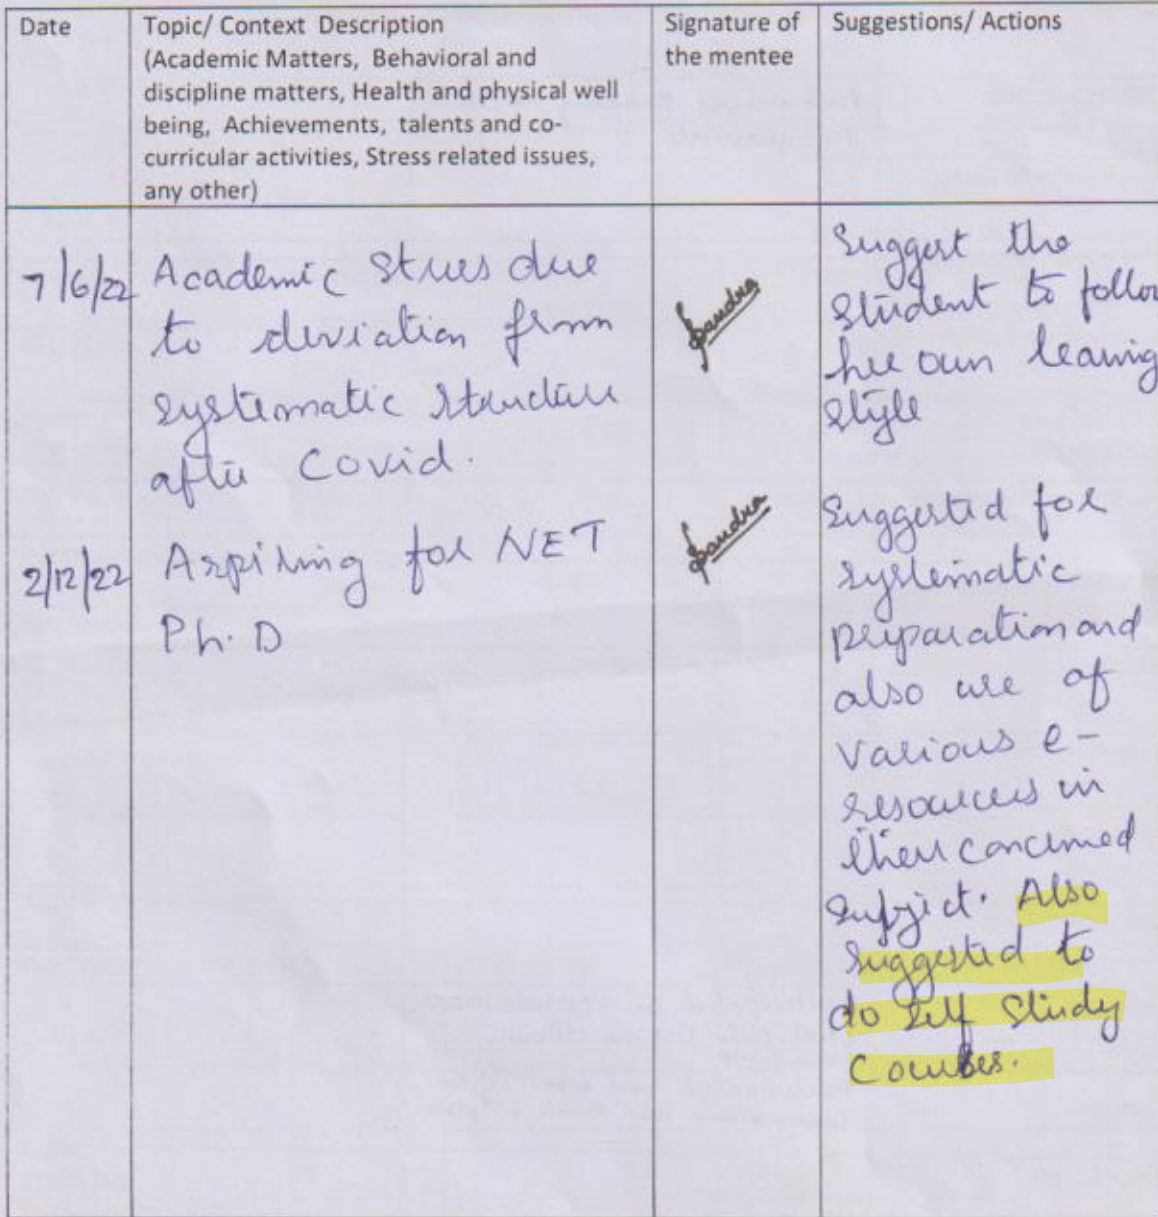 Date
Topic/ Context Description
(Academic Matters, Behavioral and
discipline matters, Health and physical well
being, Achievements, talents and co-
curricular activities, Stress related issues,
any other)
Signature of
the mentee
Suggestions/ Actions
7/6/22
Academic Stress due
to deviation from
systematic structure
after Covid.
Sandra
Suggest the
Student to follow
her own learning
style
2/12/22
Aspiring for NET
Ph.D
Sandra
Suggested for
systematic
preparation and
also use of
various e-
resources in
their concerned
subject. Also
suggested to
do self Study
Courses.